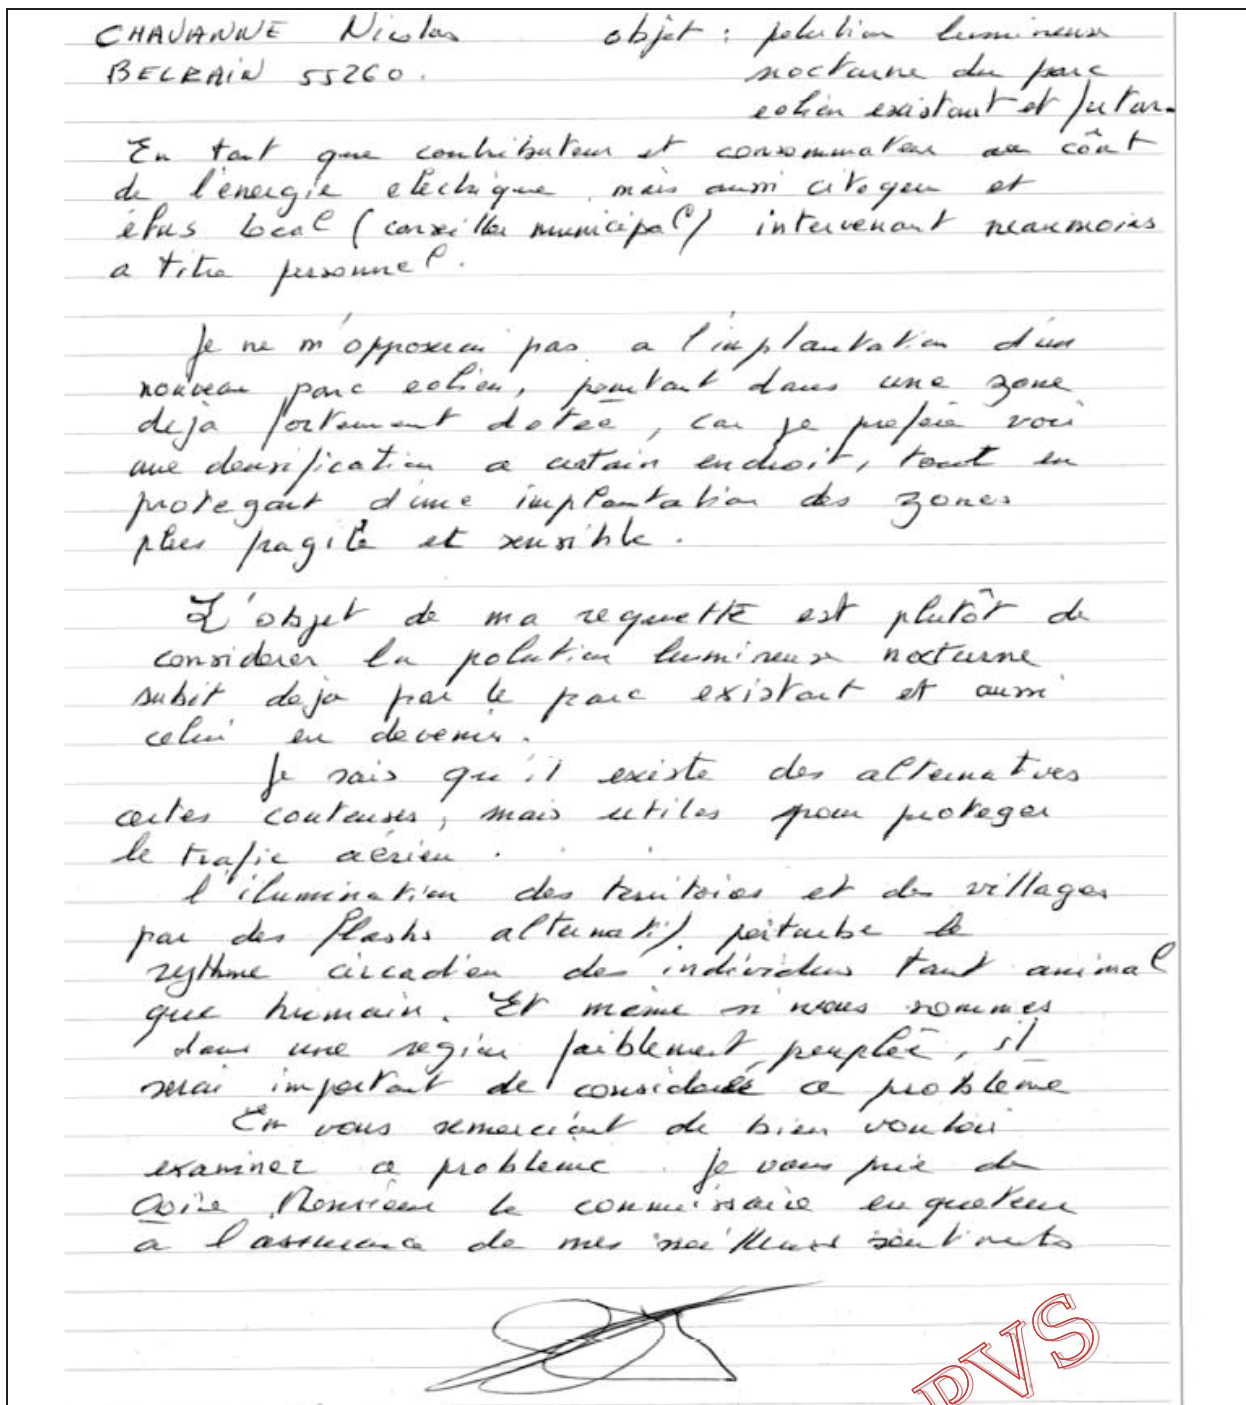 CHAVANNE Nicolas objet : polution lumineuse
BELRAIN 55260. nocturne du parc
eolien existant et futur.
En tant que contributeur et consommateur au coût
de l'énergie electrique, mais aussi citoyen et
élus local (conseiller municipal) intervenant neanmoins
a titre personnel.
Je ne m'opposerai pas a l'implantation d'un
nouveau parc eolien, pourtant dans une zone
dejà fortement dotée, car je prefère voir
une densification a certain endroit, tout en
protegeant d'une implantation des zones
plus fragile et sensible.
L'objet de ma requette est plutôt de
considerer la polution lumineuse nocturne
subit deja par le parc existant et aussi
celui en devenir.
Je sais qu'il existe des alternatives
certes couteuses, mais utiles pour proteger
le trafic aérien.
l'ilumination des territoires et des villages
par des flashs alternatif, perturbe le
rythme circadien des individus tant animal
que humain. Et même si nous sommes
dans une region faiblement peuplée, il
serai important de considerer ce problème
En vous remerciant de bien vouloir
examiner ce probleme. Je vous prie de
croire Monsieur le commissaire enqueteur
a l'assurance de mes meilleurs sentiments
PVS